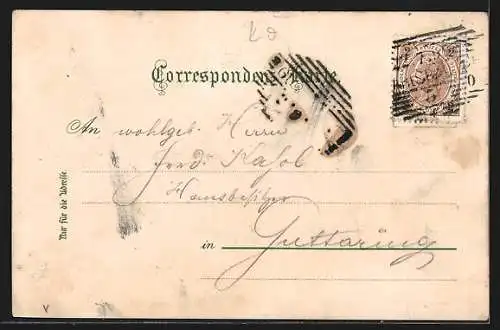 Correspondenz-Karte.
An wohlgeb. Herrn
Ferd. Kassl
Hausbesitzer
in Guttaring
Nur für die Adresse.
V